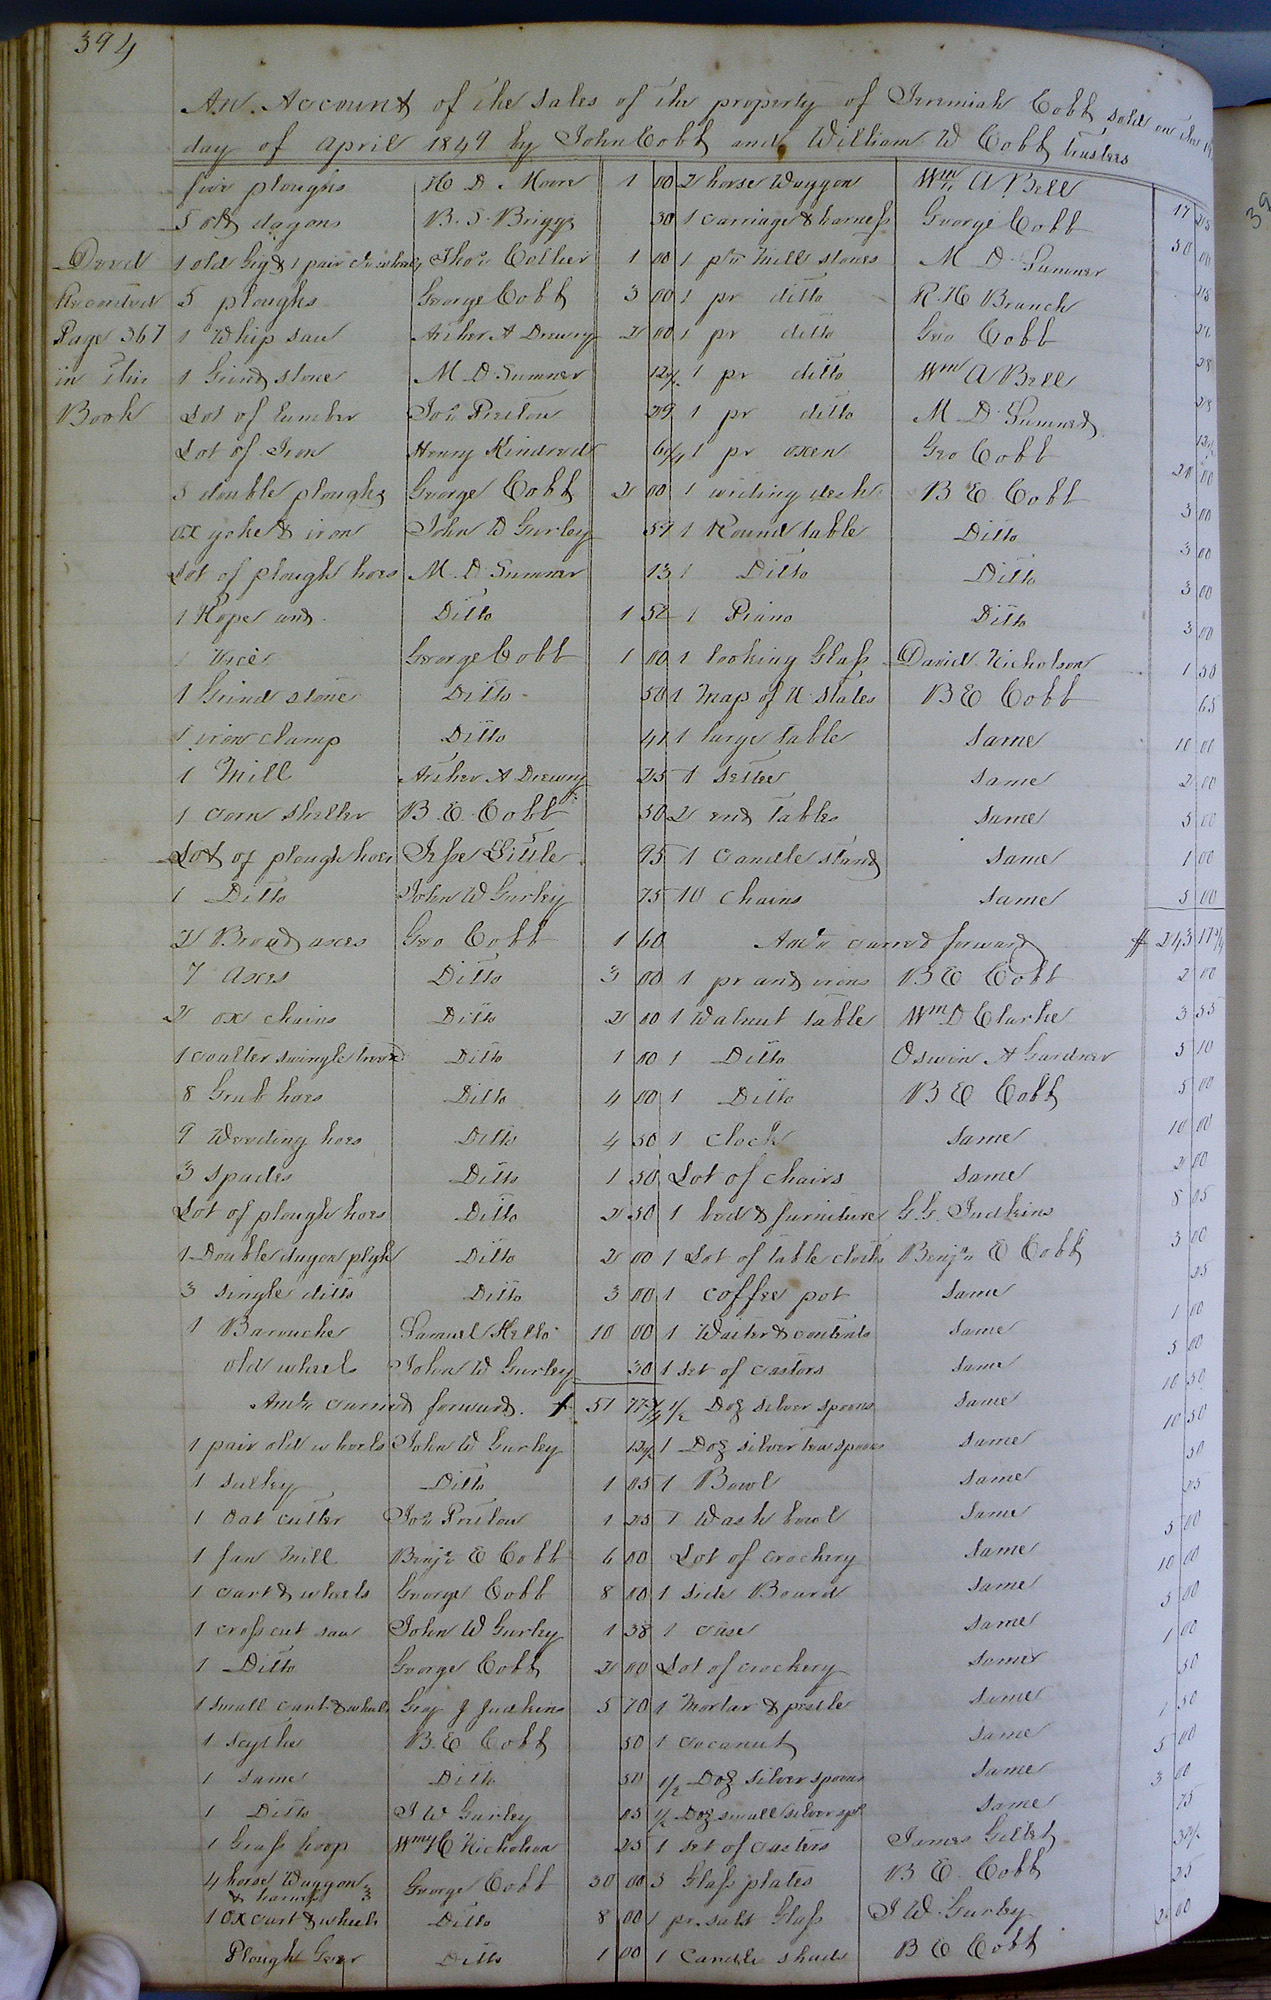 394
An Account of the sales of the property of Jeremiah Cobb sold on the
day of April 1849 by John Cobb and William W Cobb trustees
Deed
Recorded
Page 367
in this
Book
five ploughs H. D. Moore 1 00 2 horse Waggon Wm A Bell 17 25
5 old dagons B. S. Briggs 30 1 carriage & harness George Cobb 50 00
1 old Gig & 1 pair Thos Collier 1 00 1 pr Mill stones M D Sumner 25
5 ploughs George Cobb 3 00 1 pr ditto R. H Branch
1 Whip saw Archer A Drewry 2 00 1 pr ditto Geo Cobb
1 Grind stone M D Sumner 12½ 1 pr ditto Wm A Bell
Lot of lumber Jos Preston 29 1 pr ditto M D Sumner 12½
Lot of Iron Henry Kindred 6¼ 1 pr oxen Geo Cobb 20 00
5 double ploughs George Cobb 2 00 1 writing desk B E Cobb 3 00
ox yoke & iron John W Gurley 57 1 Round table Ditto 3 00
Lot of plough hoes M. D Sumner 13 1 Ditto Ditto 3 00
1 Rope and Ditto 1 52 1 Piano Ditto 3 00
1 Vice George Cobb 1 00 1 looking Glass David Nicholson 1 50
1 Grind stone Ditto 50 1 Map of U States B E Cobb 65
1 iron clamp Ditto 41 1 large table same 10 00
1 Mill Archer A Drewry 25 1 settee same 2 00
1 corn sheller B. E. Cobb 50 2 end tables same 5 00
Lot of plough hoes Jesse Little 95 1 candle stand same 1 00
1 Ditto John W Gurley 75 10 chairs same 5 00
2 Broad axes Geo Cobb 1 60 Amt carried forward $ 243 17¾
7 axes Ditto 3 00 1 pr and irons B E Cobb 2 00
2 ox chains Ditto 2 00 1 Walnut table Wm D Clarke 3 55
1 coulter swingle tree Ditto 1 00 1 Ditto Oswin A Gardner 5 10
8 Grub hoes Ditto 4 00 1 Ditto B E Cobb 5 00
9 Weeding hoes Ditto 4 50 1 clock same 10 00
3 spades Ditto 1 50 Lot of chairs same 2 00
Lot of plough hoes Ditto 2 50 1 bed & furniture G. G. Judkins 8 05
1 Double dagon plgh Ditto 2 00 1 Lot of table cloths Benjn E Cobb 3 00
3 single ditto Ditto 3 00 1 coffee pot same 25
1 Barouche Samuel Kello 10 00 1 Waiter & contents same 1 00
old wheels John W Gurley 30 1 set of castors same 5 00
Amt carried forward. 51 77¾ ½ Doz silver spoons same 10 50
1 pair old wheels John W Gurley 12½ 1 Doz silver tea spoons same 10 50
1 sulkey Ditto 1 05 1 Bowl same 50
1 Oat cutter Jos Preston 1 25 1 Wash bowl same 25
1 fan Mill Benjn E Cobb 6 00 Lot of crockery same 5 00
1 cart & wheels George Cobb 8 00 1 side Board same 10 00
1 cross cut saw John W Gurley 1 38 1 case same 5 00
1 Ditto George Cobb 2 00 Lot of crockery same 1 00
1 small cart & wheels J Judkins 5 70 1 Mortar & pestle same 50
1 scythe B. E Cobb 50 1 cocanut same 1 50
1 same Ditto 50 ½ Doz silver spoons same 5 00
1 Ditto J W Gurley 05 ½ Doz small silver same 3 00
1 Grass hoop Wm C Nicholson 25 1 set of castors James Gillet 75
4 horse Waggon & harness George Cobb 30 00 3 Glass plates B E. Cobb 32½
1 ox cart & wheels Ditto 8 00 1 pr. salt Glass J W. Gurley 25
Plough Gear Ditto 1 00 1 Candle shade B E Cobb 2 00